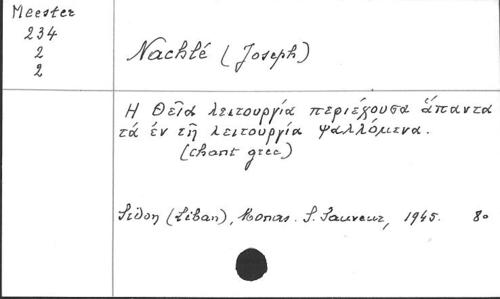 Meester
234
2
2
Nachlé (Joseph)
Η Θεῖα λειτουργία περιέχουσα ἅπαντα
τά ἐν τῆ λειτουργία ψαλλόμενα.
(chant grec)
Sidon (Liban), Monas. S. Sauveur, 1945. 8º